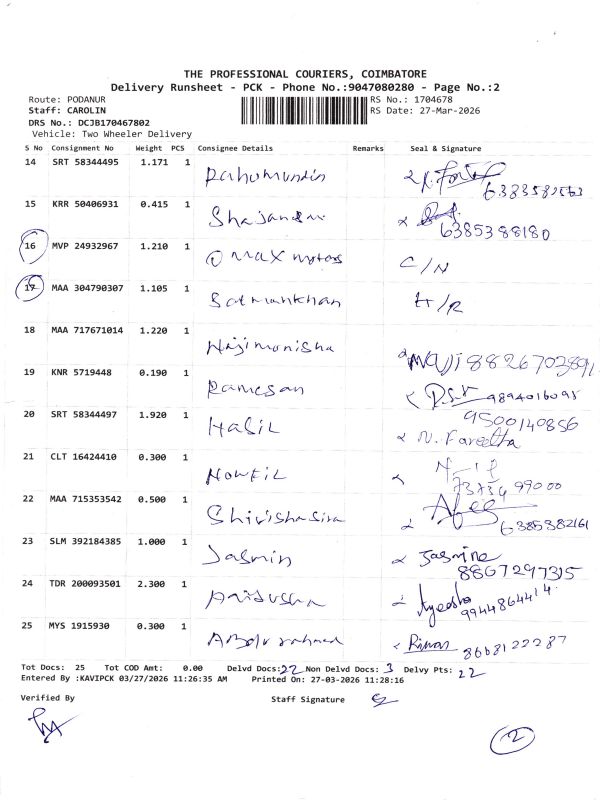 THE PROFESSIONAL COURIERS, COIMBATORE
Delivery Runsheet - PCK - Phone No.:9047080280 - Page No.:2
Route: PODANUR RS No.: 1704678
Staff: CAROLIN RS Date: 27-Mar-2026
DRS No.: DCJB170467802
Vehicle: Two Wheeler Delivery
S No Consignment No Weight PCS Consignee Details Remarks Seal & Signature
14 SRT 58344495 1.171 1
15 KRR 50406931 0.415 1
6385388180
16 MVP 24932967 1.210 1 max motors C/N
17 MAA 304790307 1.105 1 Salmankhan
18 MAA 717671014 1.220 1 Hajimonisha
19 KNR 5719448 0.190 1 Ramesan 9894016095
9500140856
20 SRT 58344497 1.920 1 Habil N. Fareetha
21 CLT 16424410 0.300 1 Nowfil
22 MAA 715353542 0.500 1
6385382161
23 SLM 392184385 1.000 1 Jasmin Jasmine
8867297315
24 TDR 200093501 2.300 1 Ayeesha 9944864414
25 MYS 1915930 0.300 1 8668122287
Tot Docs: 25 Tot COD Amt: 0.00 Delvd Docs: 22 Non Delvd Docs: 3 Delvy Pts: 22
Entered By :KAVIPCK 03/27/2026 11:26:35 AM Printed On: 27-03-2026 11:28:16
Verified By Staff Signature
2